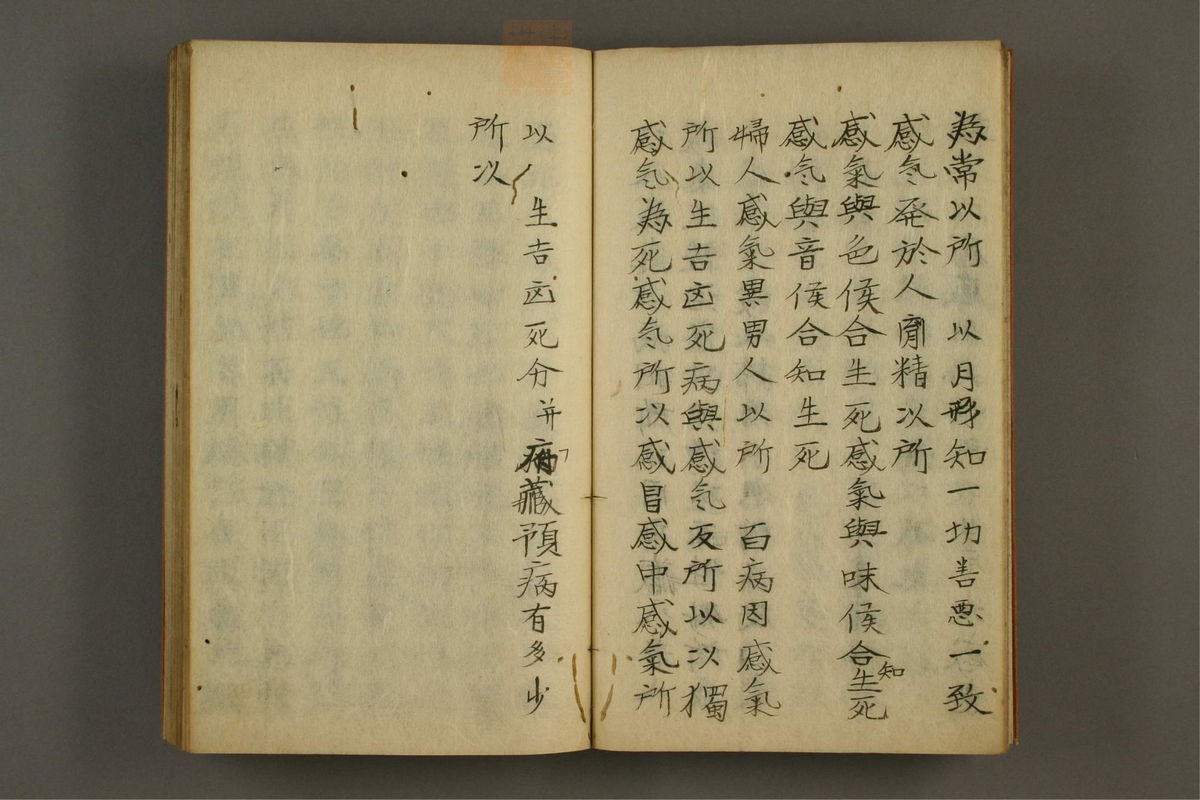 為常以所　以月形知一切善悪一致
感気発於人　精以所
感氣與色候合生死感氣與味候合知生死
感気與音候合知生死
婦人感氣異男人以所　百病因感氣
所以生吉凶死病與感気反所以以獨
感気為死感気所以感冒感中感氣所
以　生吉凶死分并病藏預病有多少
所以